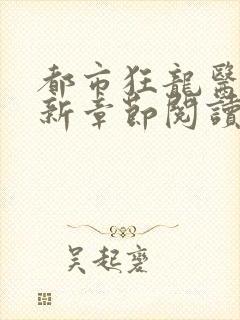 都市狂龍醫
新章節閱讀
吴起褒